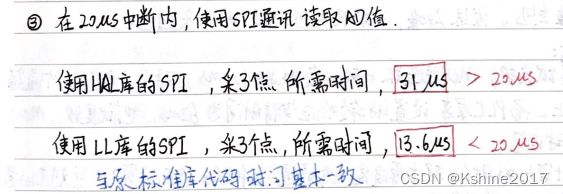 ③ 在20us中断内,使用SPI通讯 读取AD值.
使用HAL库的SPI ,采3个点 所需时间, 31us > 20us
使用LL库的SPI ,采3个点,所需时间, 13.6us < 20us
与原标准库代码时间基本一致
CSDN @Kshine2017